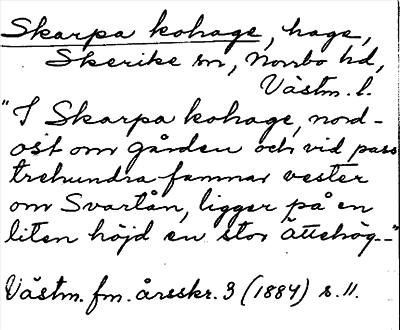 Skarpa kohage, hage,
Skerike sn, Norrbo hd,
Västm. l.
"I Skarpa kohage, nord-
ost om gården och vid pass
trehundra famnar vester
om Svartån, ligger på en
liten höjd en stor ättehög.-"
Västm. fm. årsskr. 3 (1884) s. 11.